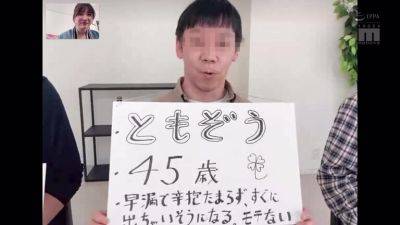 ・ともぞう
・45歳
・早漏で辛抱たまらず、すぐに
出ちゃいそうになる。モテない